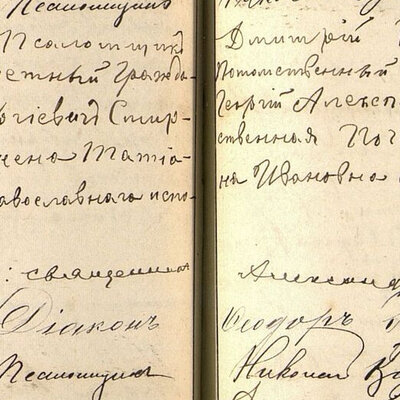 Псаломщикъ
Псаломщикъ
етный Гражда-
ргіевичъ Смир-
жена Татіа-
авославнаго испо-
: священникъ
Діаконъ
Псаломщикъ
Дмитрій
Потомственный
Георгій Алекс
ственная Поч
на Ивановна
Александ
Ѳеодоръ
Николай